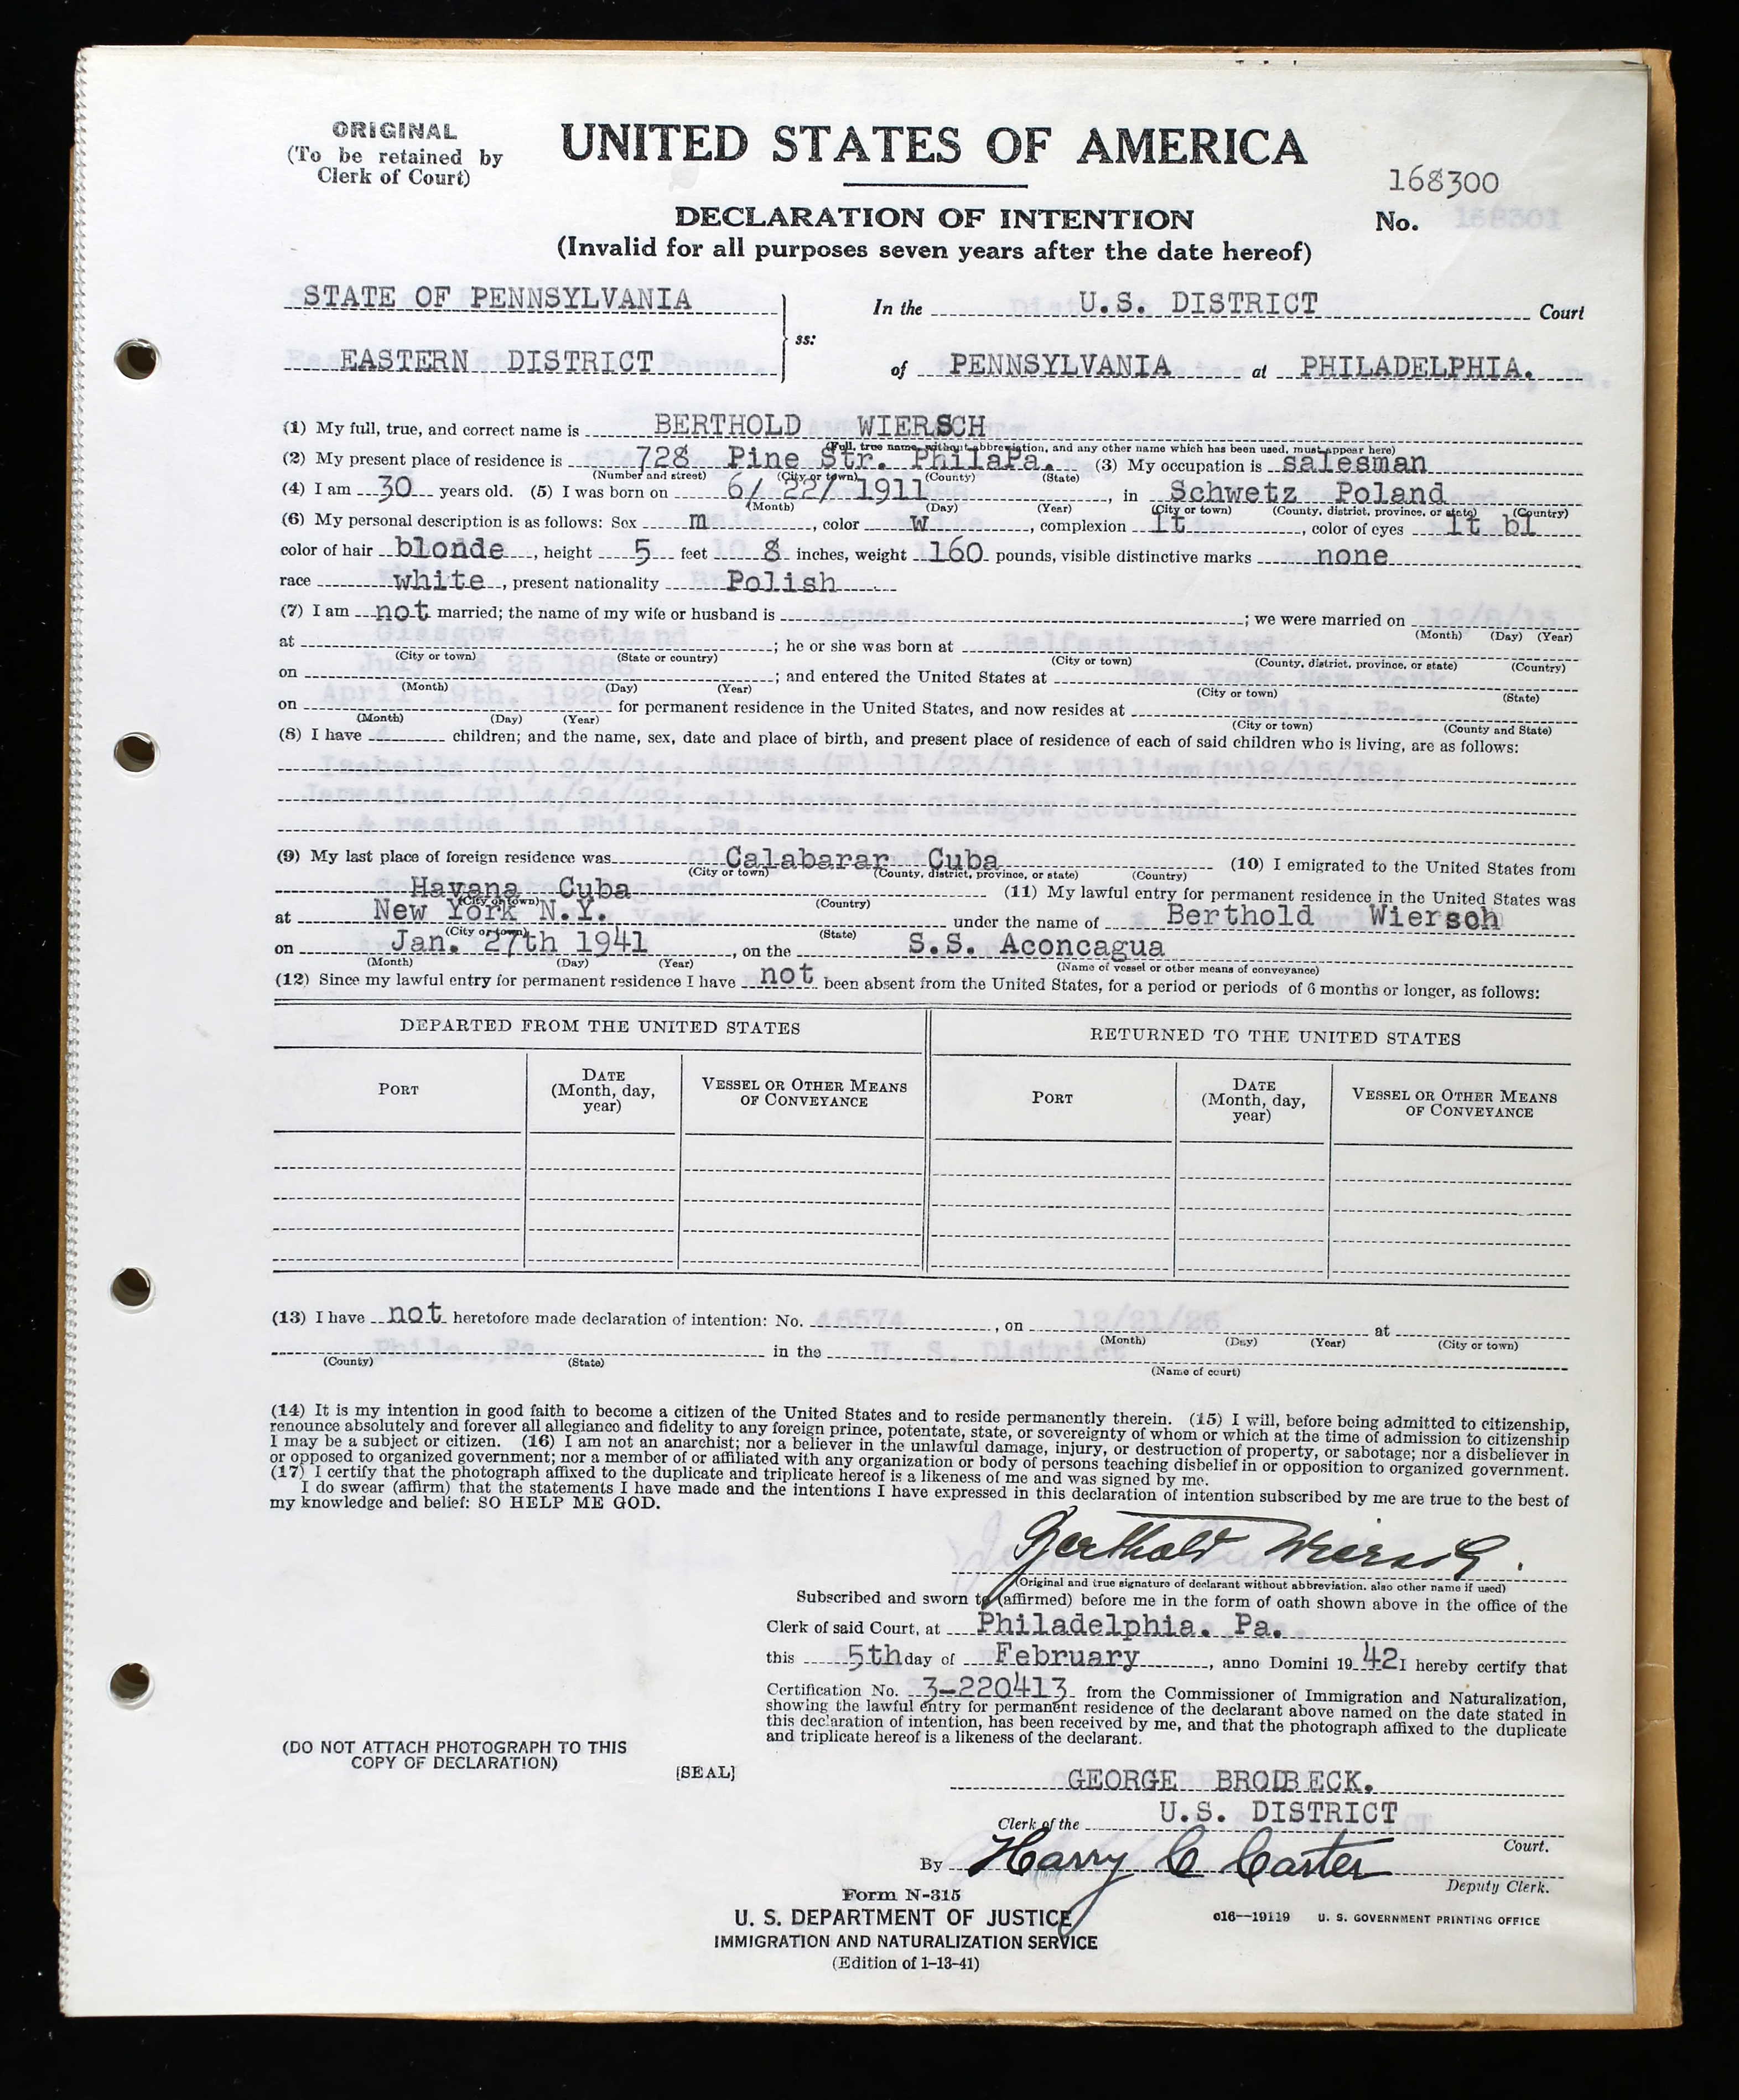 ORIGINAL
(To be retained by
Clerk of Court)
UNITED STATES OF AMERICA
168300
DECLARATION OF INTENTION
No. 168301
(Invalid for all purposes seven years after the date hereof)
STATE OF PENNSYLVANIA
In the U.S. DISTRICT Court
ss:
EASTERN DISTRICT
of PENNSYLVANIA at PHILADELPHIA.
(1) My full, true, and correct name is BERTHOLD WIERSCH
(Full, true name, without abbreviation, and any other name which has been used, must appear here)
(2) My present place of residence is 728 Pine Str. PhilaPa. (3) My occupation is salesman
(Number and street) (City or town) (County) (State)
(4) I am 30 years old. (5) I was born on 6/ 22/ 1911, in Schwetz Poland
(Month) (Day) (Year) (City or town) (County, district, province, or state) (Country)
(6) My personal description is as follows: Sex m, color w, complexion lt, color of eyes lt bl
color of hair blonde, height 5 feet 8 inches, weight 160 pounds, visible distinctive marks none
race white, present nationality Polish
(7) I am not married; the name of my wife or husband is ; we were married on
(Month) (Day) (Year)
at ; he or she was born at
(City or town) (State or country) (City or town) (County, district, province, or state) (Country)
on ; and entered the United States at
(Month) (Day) (Year) (City or town) (State)
on for permanent residence in the United States, and now resides at
(Month) (Day) (Year) (City or town) (County and State)
(8) I have children; and the name, sex, date and place of birth, and present place of residence of each of said children who is living, are as follows:
(9) My last place of foreign residence was Calabarar Cuba (10) I emigrated to the United States from
(City or town) (County, district, province, or state) (Country)
Havana Cuba (11) My lawful entry for permanent residence in the United States was
(City or town) (Country)
at New York N.Y. under the name of Berthold Wiersch
(City or town) (State)
on Jan. 27th 1941, on the S.S. Aconcagua
(Month) (Day) (Year) (Name of vessel or other means of conveyance)
(12) Since my lawful entry for permanent residence I have not been absent from the United States, for a period or periods of 6 months or longer, as follows:
DEPARTED FROM THE UNITED STATES
RETURNED TO THE UNITED STATES
PORT
DATE
(Month, day,
year)
VESSEL OR OTHER MEANS
OF CONVEYANCE
PORT
DATE
(Month, day,
year)
VESSEL OR OTHER MEANS
OF CONVEYANCE
(13) I have not heretofore made declaration of intention: No. , on at
(Month) (Day) (Year) (City or town)
in the
(County) (State) (Name of court)
(14) It is my intention in good faith to become a citizen of the United States and to reside permanently therein. (15) I will, before being admitted to citizenship,
renounce absolutely and forever all allegiance and fidelity to any foreign prince, potentate, state, or sovereignty of whom or which at the time of admission to citizenship
I may be a subject or citizen. (16) I am not an anarchist; nor a believer in the unlawful damage, injury, or destruction of property, or sabotage; nor a disbeliever in
or opposed to organized government; nor a member of or affiliated with any organization or body of persons teaching disbelief in or opposition to organized government.
(17) I certify that the photograph affixed to the duplicate and triplicate hereof is a likeness of me and was signed by me.
I do swear (affirm) that the statements I have made and the intentions I have expressed in this declaration of intention subscribed by me are true to the best of
my knowledge and belief: SO HELP ME GOD.
Berthold Wiersch.
(Original and true signature of declarant without abbreviation, also other name if used)
Subscribed and sworn to (affirmed) before me in the form of oath shown above in the office of the
Clerk of said Court, at Philadelphia. Pa.
this 5th day of February, anno Domini 1942 I hereby certify that
Certification No. 3-220413 from the Commissioner of Immigration and Naturalization,
showing the lawful entry for permanent residence of the declarant above named on the date stated in
this declaration of intention, has been received by me, and that the photograph affixed to the duplicate
and triplicate hereof is a likeness of the declarant.
(DO NOT ATTACH PHOTOGRAPH TO THIS
COPY OF DECLARATION)
[SEAL]
GEORGE BRODBECK.
Clerk of the U.S. DISTRICT
Court.
By Harry C Carter
Deputy Clerk.
Form N-315
U. S. DEPARTMENT OF JUSTICE
IMMIGRATION AND NATURALIZATION SERVICE
(Edition of 1-13-41)
c16—19119 U. S. GOVERNMENT PRINTING OFFICE